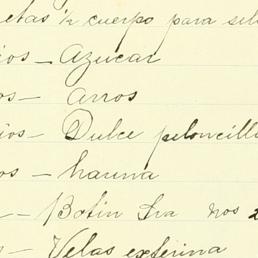 etas ½ cuerpo para sil
ios — Azucar
os — arros
ios — Dulce piloncill
os — harina
— Botin Sra nos 2
s — Velas exterina